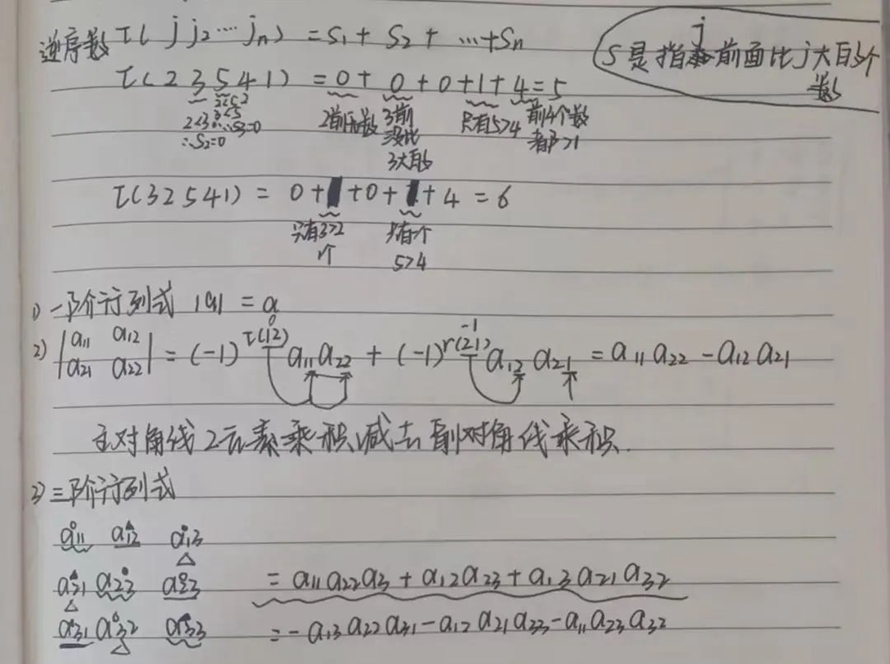 逆序数 τ(j j₂ … jₙ) = S₁ + S₂ + … + Sₙ
S是指j前面比j大的个数
τ(23541) = 0 + 0 + 0 + 1 + 4 = 5
2<3 ∴S₂=0
2前无数 3前没比3大的 只有5>4 前4个数都>1
τ(32541) = 0 + 1 + 0 + 1 + 4 = 6
只有3>2 1个
只有1个 5>4
1) 一阶行列式 |a| = a
2) |a₁₁ a₁₂
a₂₁ a₂₂| = (-1)^τ(12) a₁₁a₂₂ + (-1)^τ(21) a₁₂ a₂₁ = a₁₁a₂₂ - a₁₂a₂₁
-1
主对角线2元素乘积减去副对角线乘积.
3) 三阶行列式
a₁₁ a₁₂ a₁₃
a₂₁ a₂₃ a₂₃ = a₁₁a₂₂a₃ + a₁₂a₂₃ + a₁₃a₂₁a₃₂
a₃₁ a₃₂ a₃₃ = -a₁₃a₂₂a₃₁ - a₁₂a₂₁a₃₃ - a₁₁a₂₃a₃₂